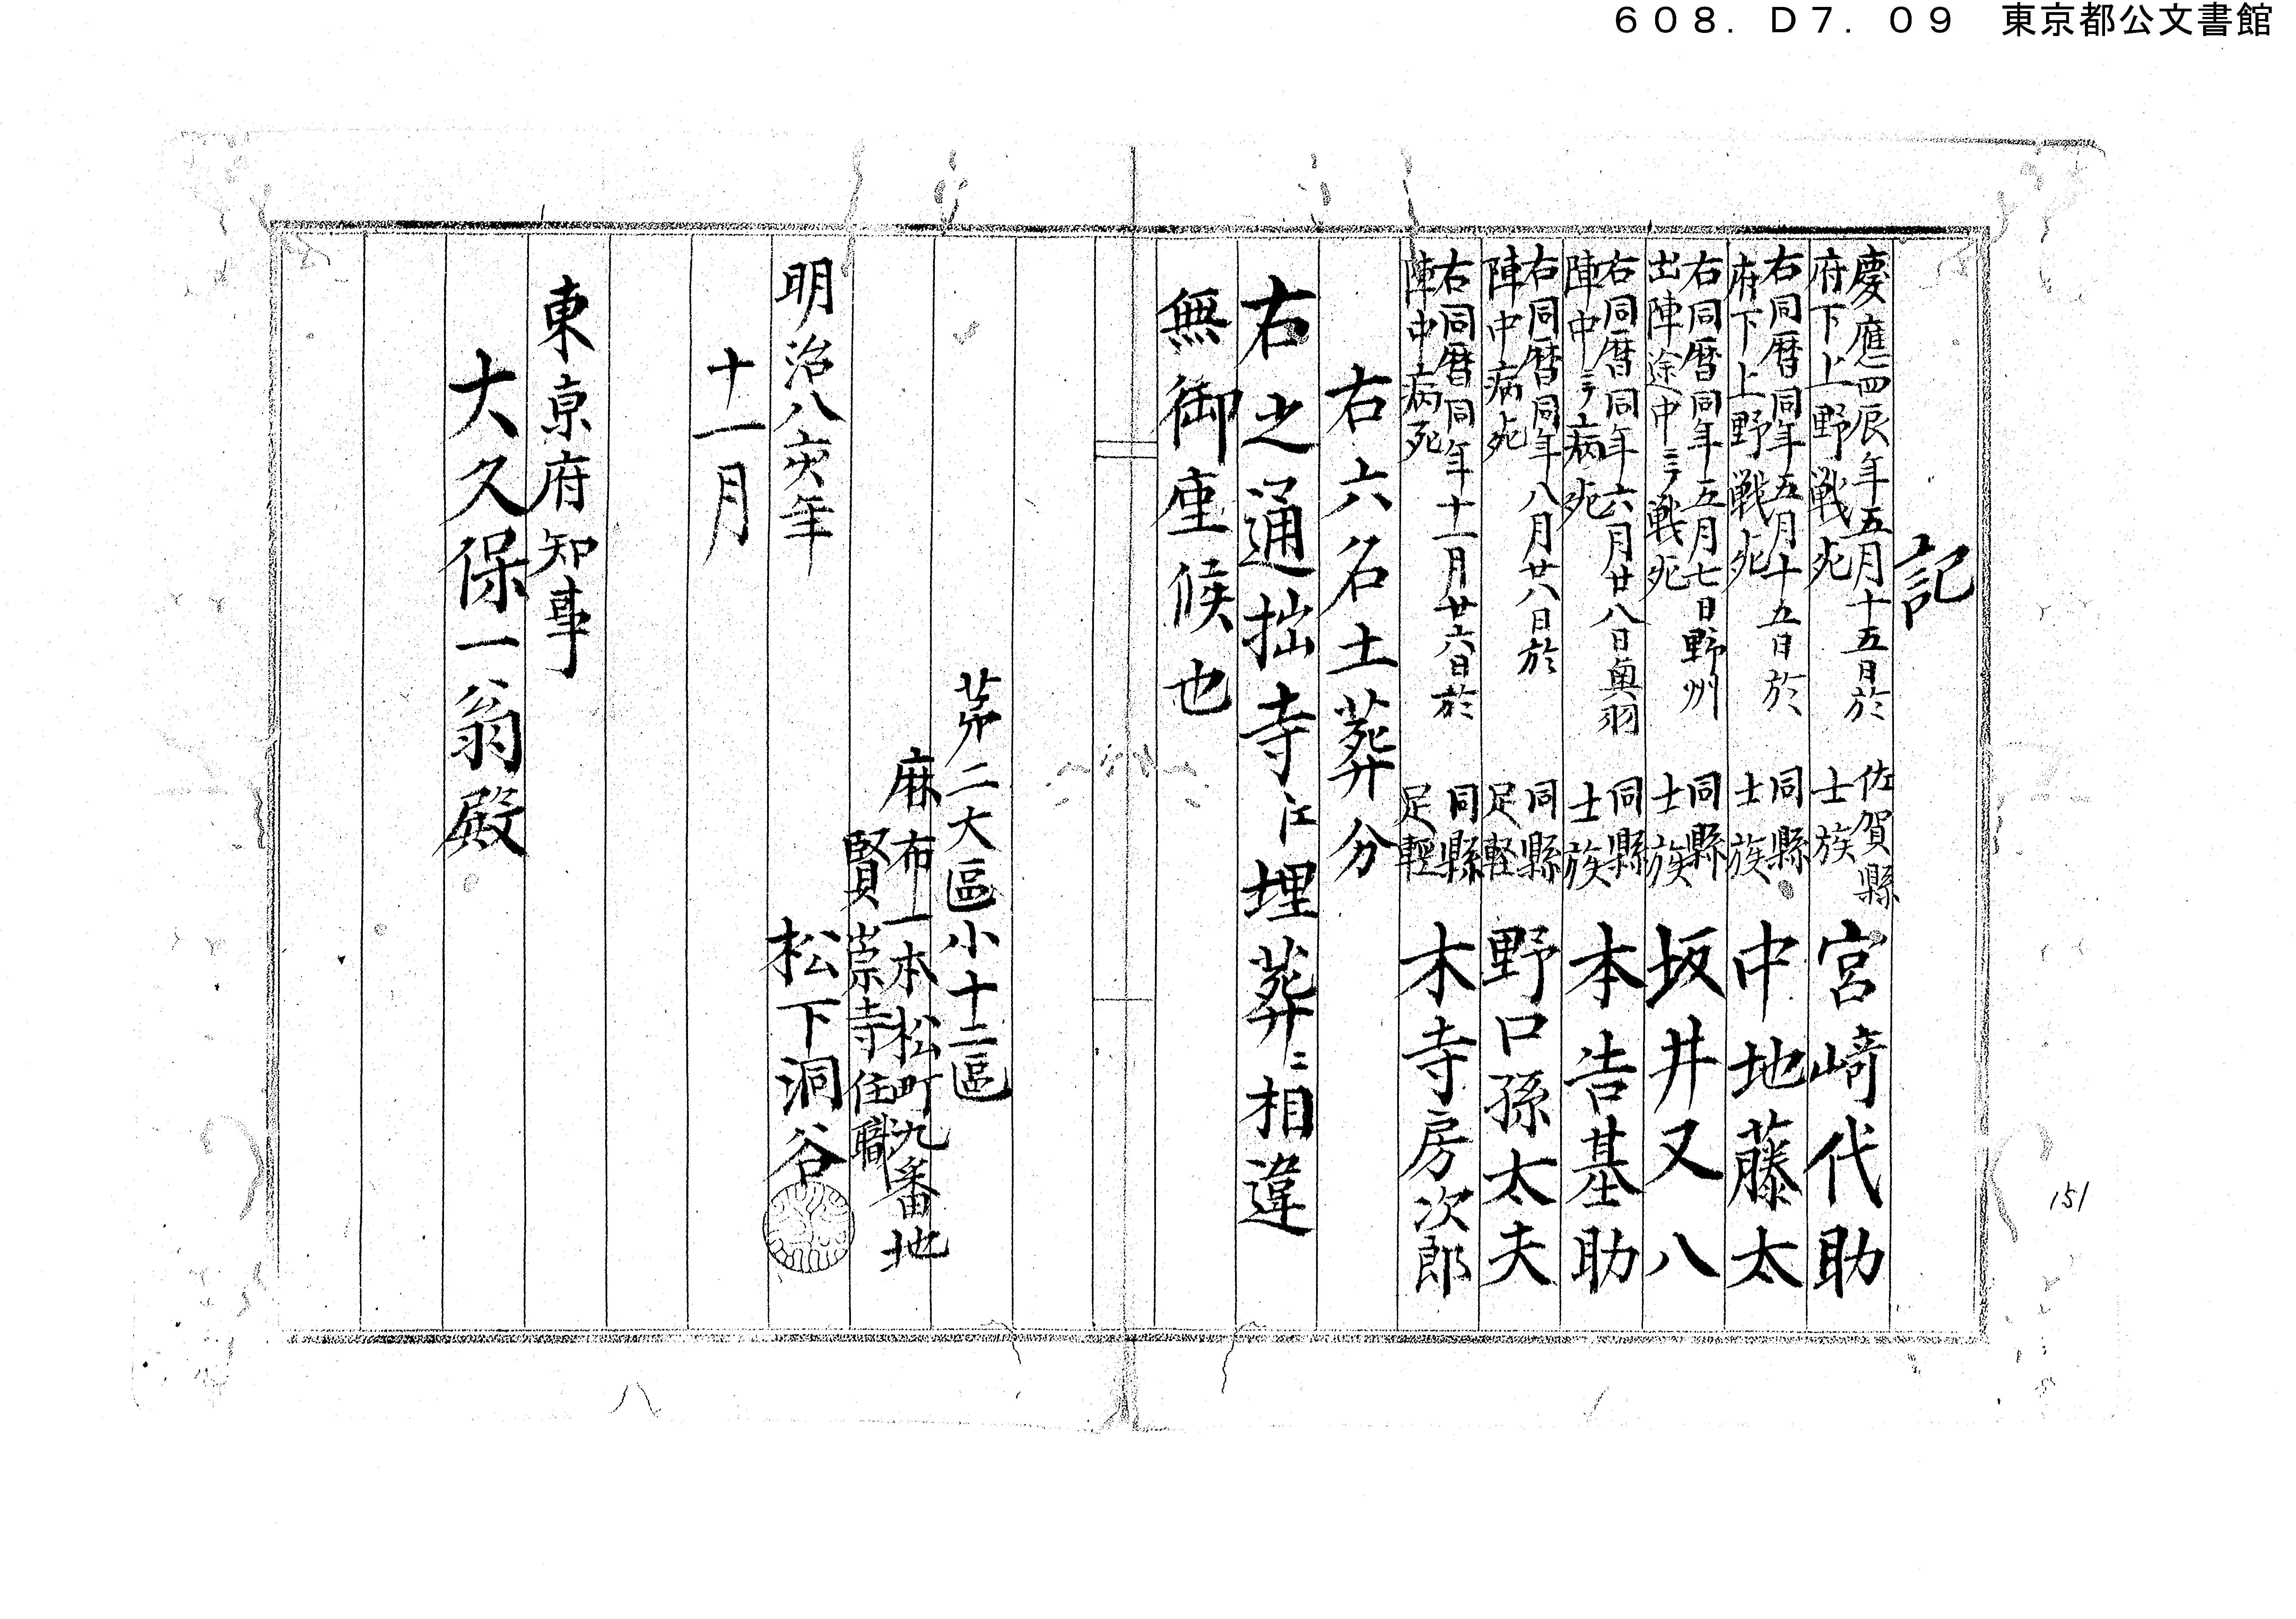 608. D7. 09 東京都公文書館
記
慶應四辰年五月十五日於
府下上野戦死
佐賀縣
士族
宮﨑代助
右同暦同年五月十五日於
府下上野戦死
同縣
士族
中地藤太
右同暦同年五月七日野州
出陣途中ニテ戦死
同縣
士族
坂井又八
右同暦同年六月廿八日奥羽
陣中ニテ病死
同縣
士族
本告基助
右同暦同年八月廿八日於
陣中病死
同縣
足軽
野口孫太夫
右同暦同年十一月廿六日於
陣中病死
同縣
足輕
木寺房次郎
右六名土葬分
右之通拙寺江埋葬ニ相違
無御座候也
第二大區小十二區
麻布一本松町九番地
賢崇寺住職
松下洞谷
明治八亥年
十一月
東京府知事
大久保一翁殿
151